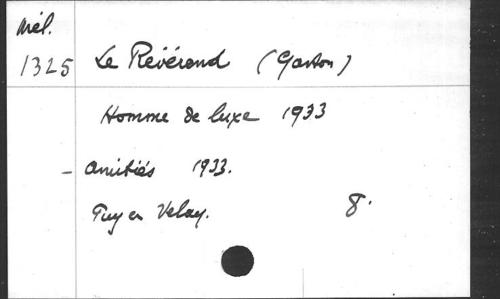 Mél.
1325 Le Révérend (Gaston)
Homme de luxe 1933
- Amitiés 1933.
Puy en Velay. 8.